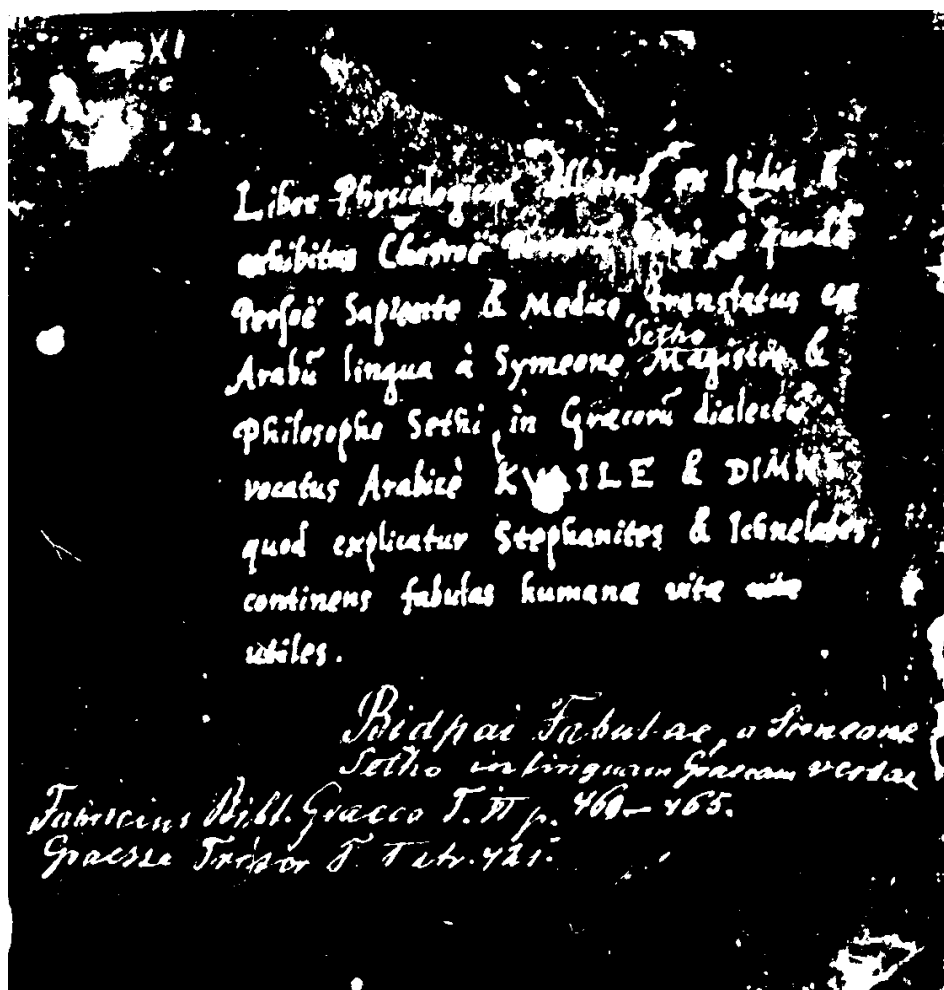 XI
Liber Physiologicus allatus ex India &
exhibitus Chosroë à quodā
Persoë Sapiente & Medico, translatus ex
Setho
Arabū lingua à Symeone, Magistro &
Philosopho Sethi, in Græcorū dialectū,
vocatus Arabicè & DIMNE
quod explicatur Stephanites & Ichnelates,
continens fabulas humanæ vitæ
utiles.
Bidpai Fabulae, a Simeone
Setho in linguam Graecam versae
Fabricius Bibl. Graeca T. VI p. 460–465.
Graesse Trésor T. I str. 421.